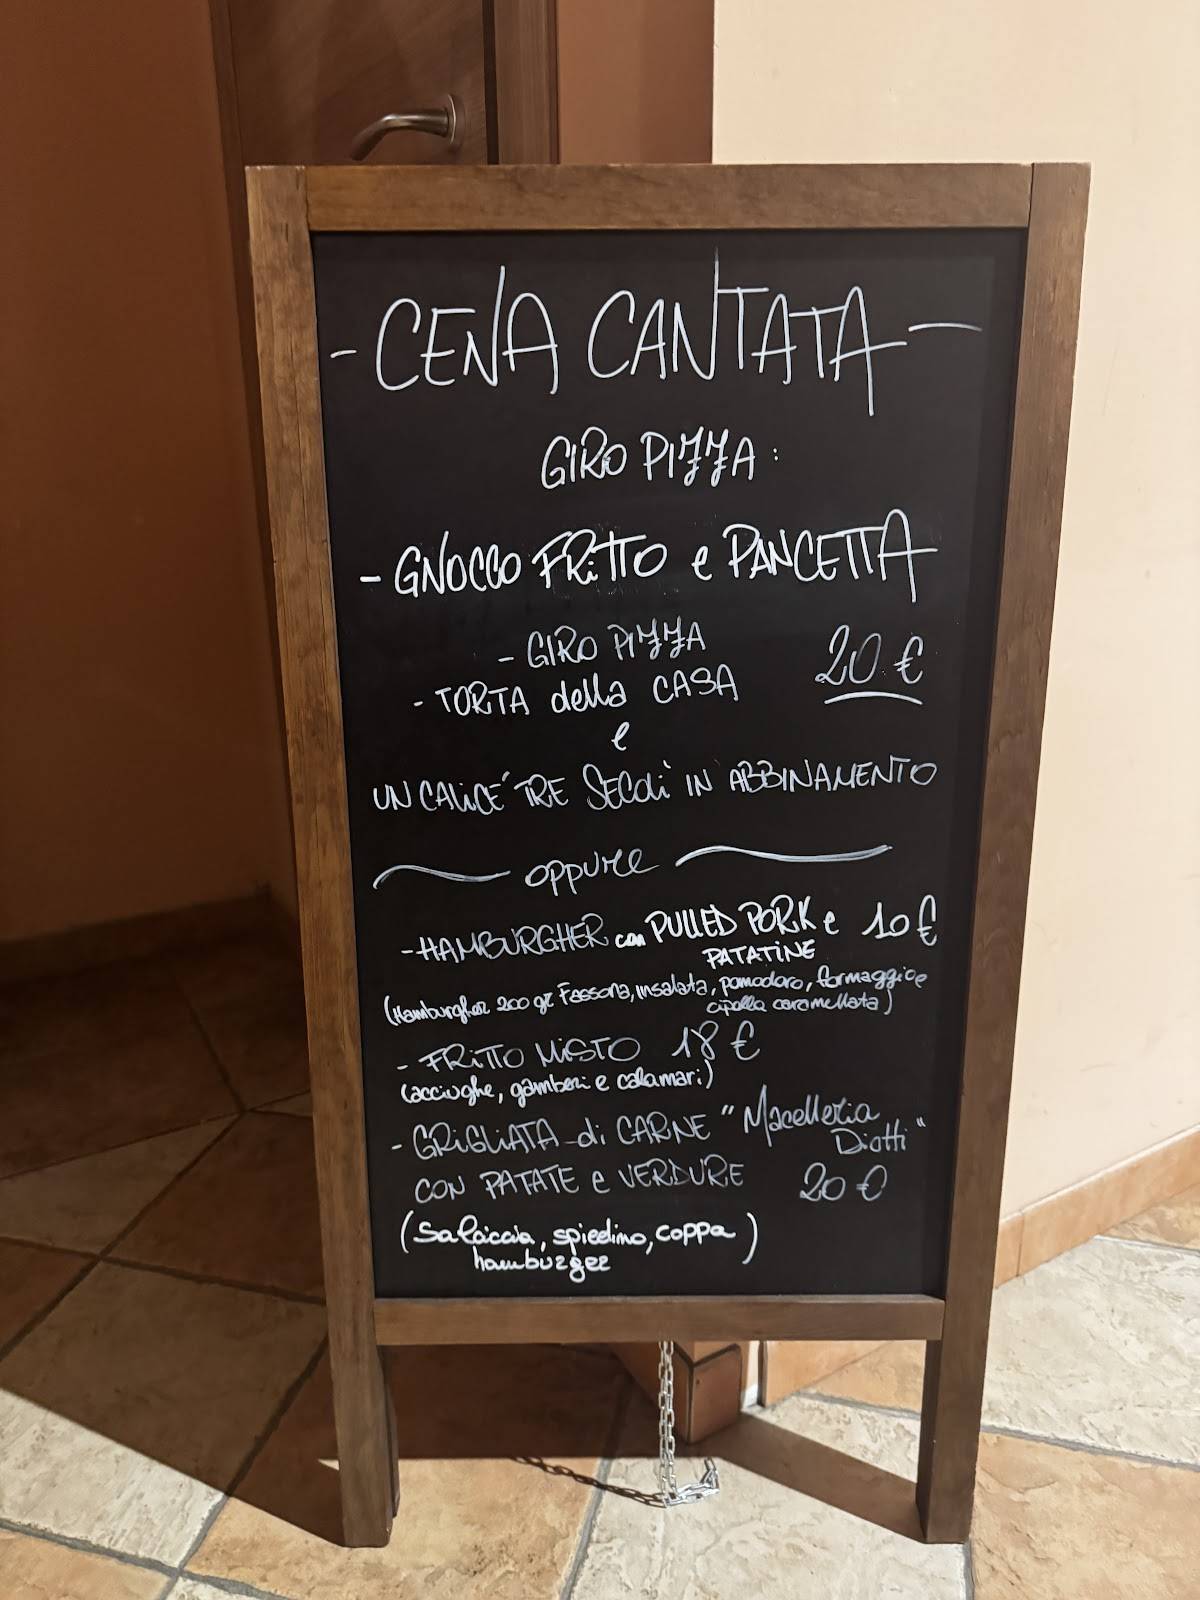 - CENA CANTATA -
GIRO PIZZA:
- GNOCCO FRITTO e PANCETTA
- GIRO PIZZA 20 €
- TORTA della CASA
e
UN CALICE "TRE SECOLI" IN ABBINAMENTO
oppure
- HAMBURGHER con PULLED PORK e 10 €
PATATINE
(Hamburgher 200 gr Fassona, insalata, pomodoro, formaggio e
cipolla caramellata)
- FRITTO MISTO 18 €
(acciughe, gamberi e calamari)
- GRIGLIATA di CARNE "Macelleria
Diotti"
CON PATATE e VERDURE 20 €
(Salciccia, spiedino, coppa)
hamburger